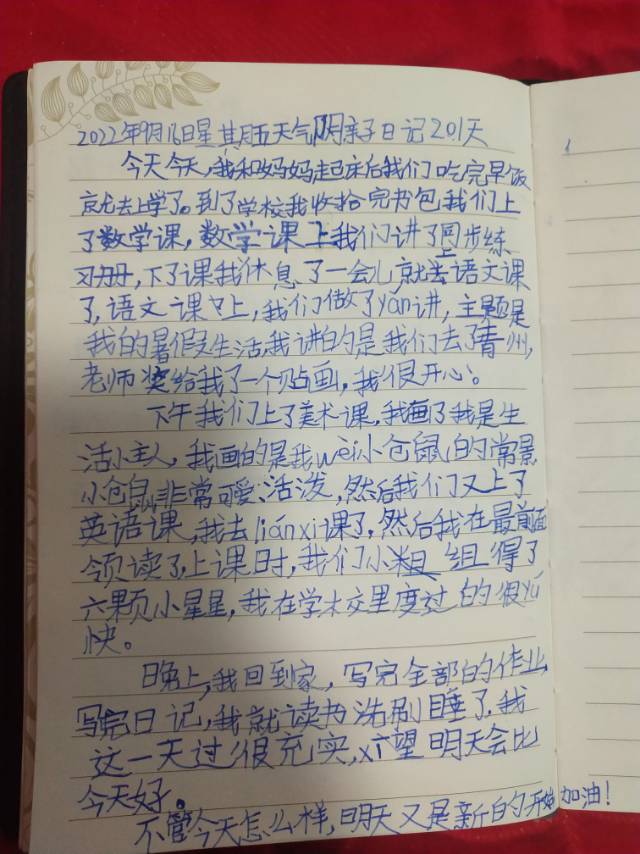 2022年9月16日星其月五天气阴亲子日记201天
今天今天,我和妈妈起床后我们吃完早饭
就去上学了。到了学校我收拾完书包,我们上
了数学课,数学课上我们讲了同步练
习册,下了课我休息了一会儿,就去语文课
了,语文课上,我们做了yǎn讲,主题是
我的暑假生活,我讲的是我们去了青州,
老师奖给我了一个贴画,我很开心。
下午我们上了美术课,我画了我是生
活小主人,我画的是我wèi小仓鼠的常景
小仓鼠非常可爱、活泼,然后我们又上了
英语课,我去liánxi课了,然后我在最前面
领读了,上课时,我们小组 组得了
六颗小星星,我在学校里度过的很yú
快。
晚上,我回到家,写完全部的作业,
写完日记,我就读书洗刷睡了,我
这一天过很充实,希望明天会比
今天好。
不管今天怎么样,明天又是新的开始加油!